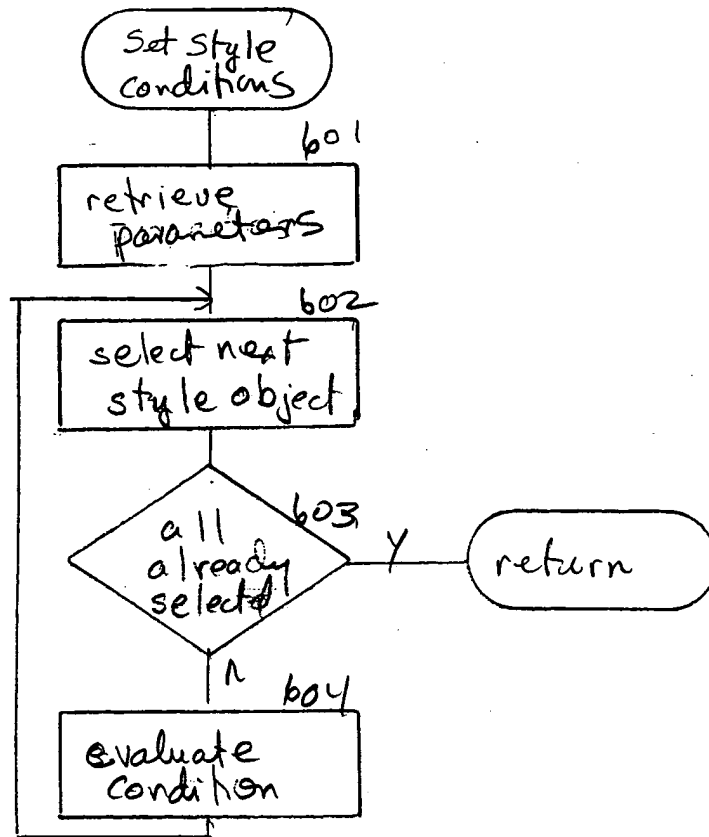 Set Style
conditions
601
retrieve
parameters
602
select next
style object
603
all
already
selected
Y
return
N
604
evaluate
condition